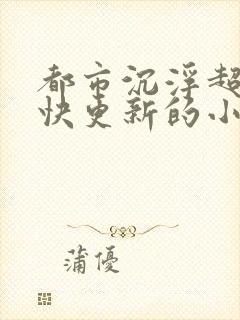 都市沉浮超
快更新的小
蒲優